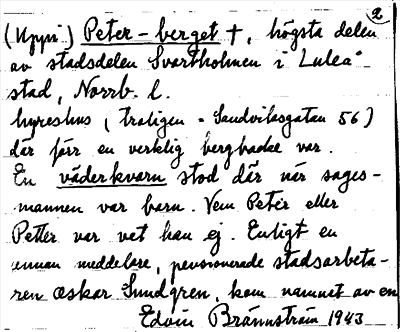 2
(Uppi) Peter-berget †, högsta delen
av stadsdelen Svartholmen i Luleå
stad, Norrb. l.
hyreshus (troligen - Sandviksgatan 56)
där förr en verklig bergbacke var.
En väderkvarn stod där när sages-
mannen var barn. Vem Peter eller
Petter var vet han ej. Enligt en
annan meddelare, pensionerade stadsarbeta-
ren Oskar Sundgren, kom namnet av en
Edvin Brännström 1943